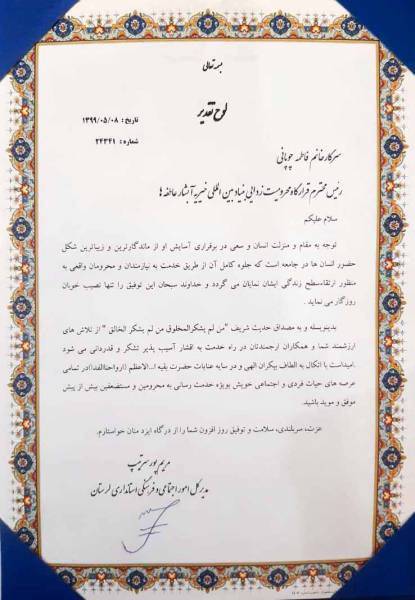 بسمه تعالی
لوح تقدیر
تاریخ : ۱۳۹۹/۰۵/۰۸
شماره : ۲۴۳۴۱
سرکار خانم فاطمه چوپانی
رئیس محترم قرارگاه محرومیت زدایی بنیاد بین المللی خیریه آبشار عاطفه ها
سلام علیکم
توجه به مقام و منزلت انسان و سعی در برقراری آسایش او از ماندگارترین و زیباترین شکل
حضور انسان ها در جامعه است که جلوه کامل آن از طریق خدمت به نیازمندان و محرومان واقعی به
منظور ارتقاءسطح زندگی ایشان نمایان می گردد و خداوند سبحان این توفیق را تنها نصیب خوبان
روزگار می نماید .
بدینوسیله و به مصداق حدیث شریف "من لم یشکرالمخلوق من لم یشکر الخالق " از تلاش های
ارزشمند شما و همکاران ارجمندتان در راه خدمت به اقشار آسیب پذیر تشکر و قدردانی می شود
.امیداست با اتکال به الطاف بیکران الهی و در سایه عنایات حضرت بقیه ا...الاعظم (ارواحناالفدا)در تمامی
عرصه های حیات فردی و اجتماعی خویش بویژه خدمت رسانی به محرومین و مستضعفین بیش از پیش
موفق و موید باشید.
عزت، سربلندی، سلامت و توفیق روز افزون شما را از درگاه ایزد منان خواستارم.
مریم پور سرتیپ
مدیر کل امور اجتماعی و فرهنگی استانداری لرستان